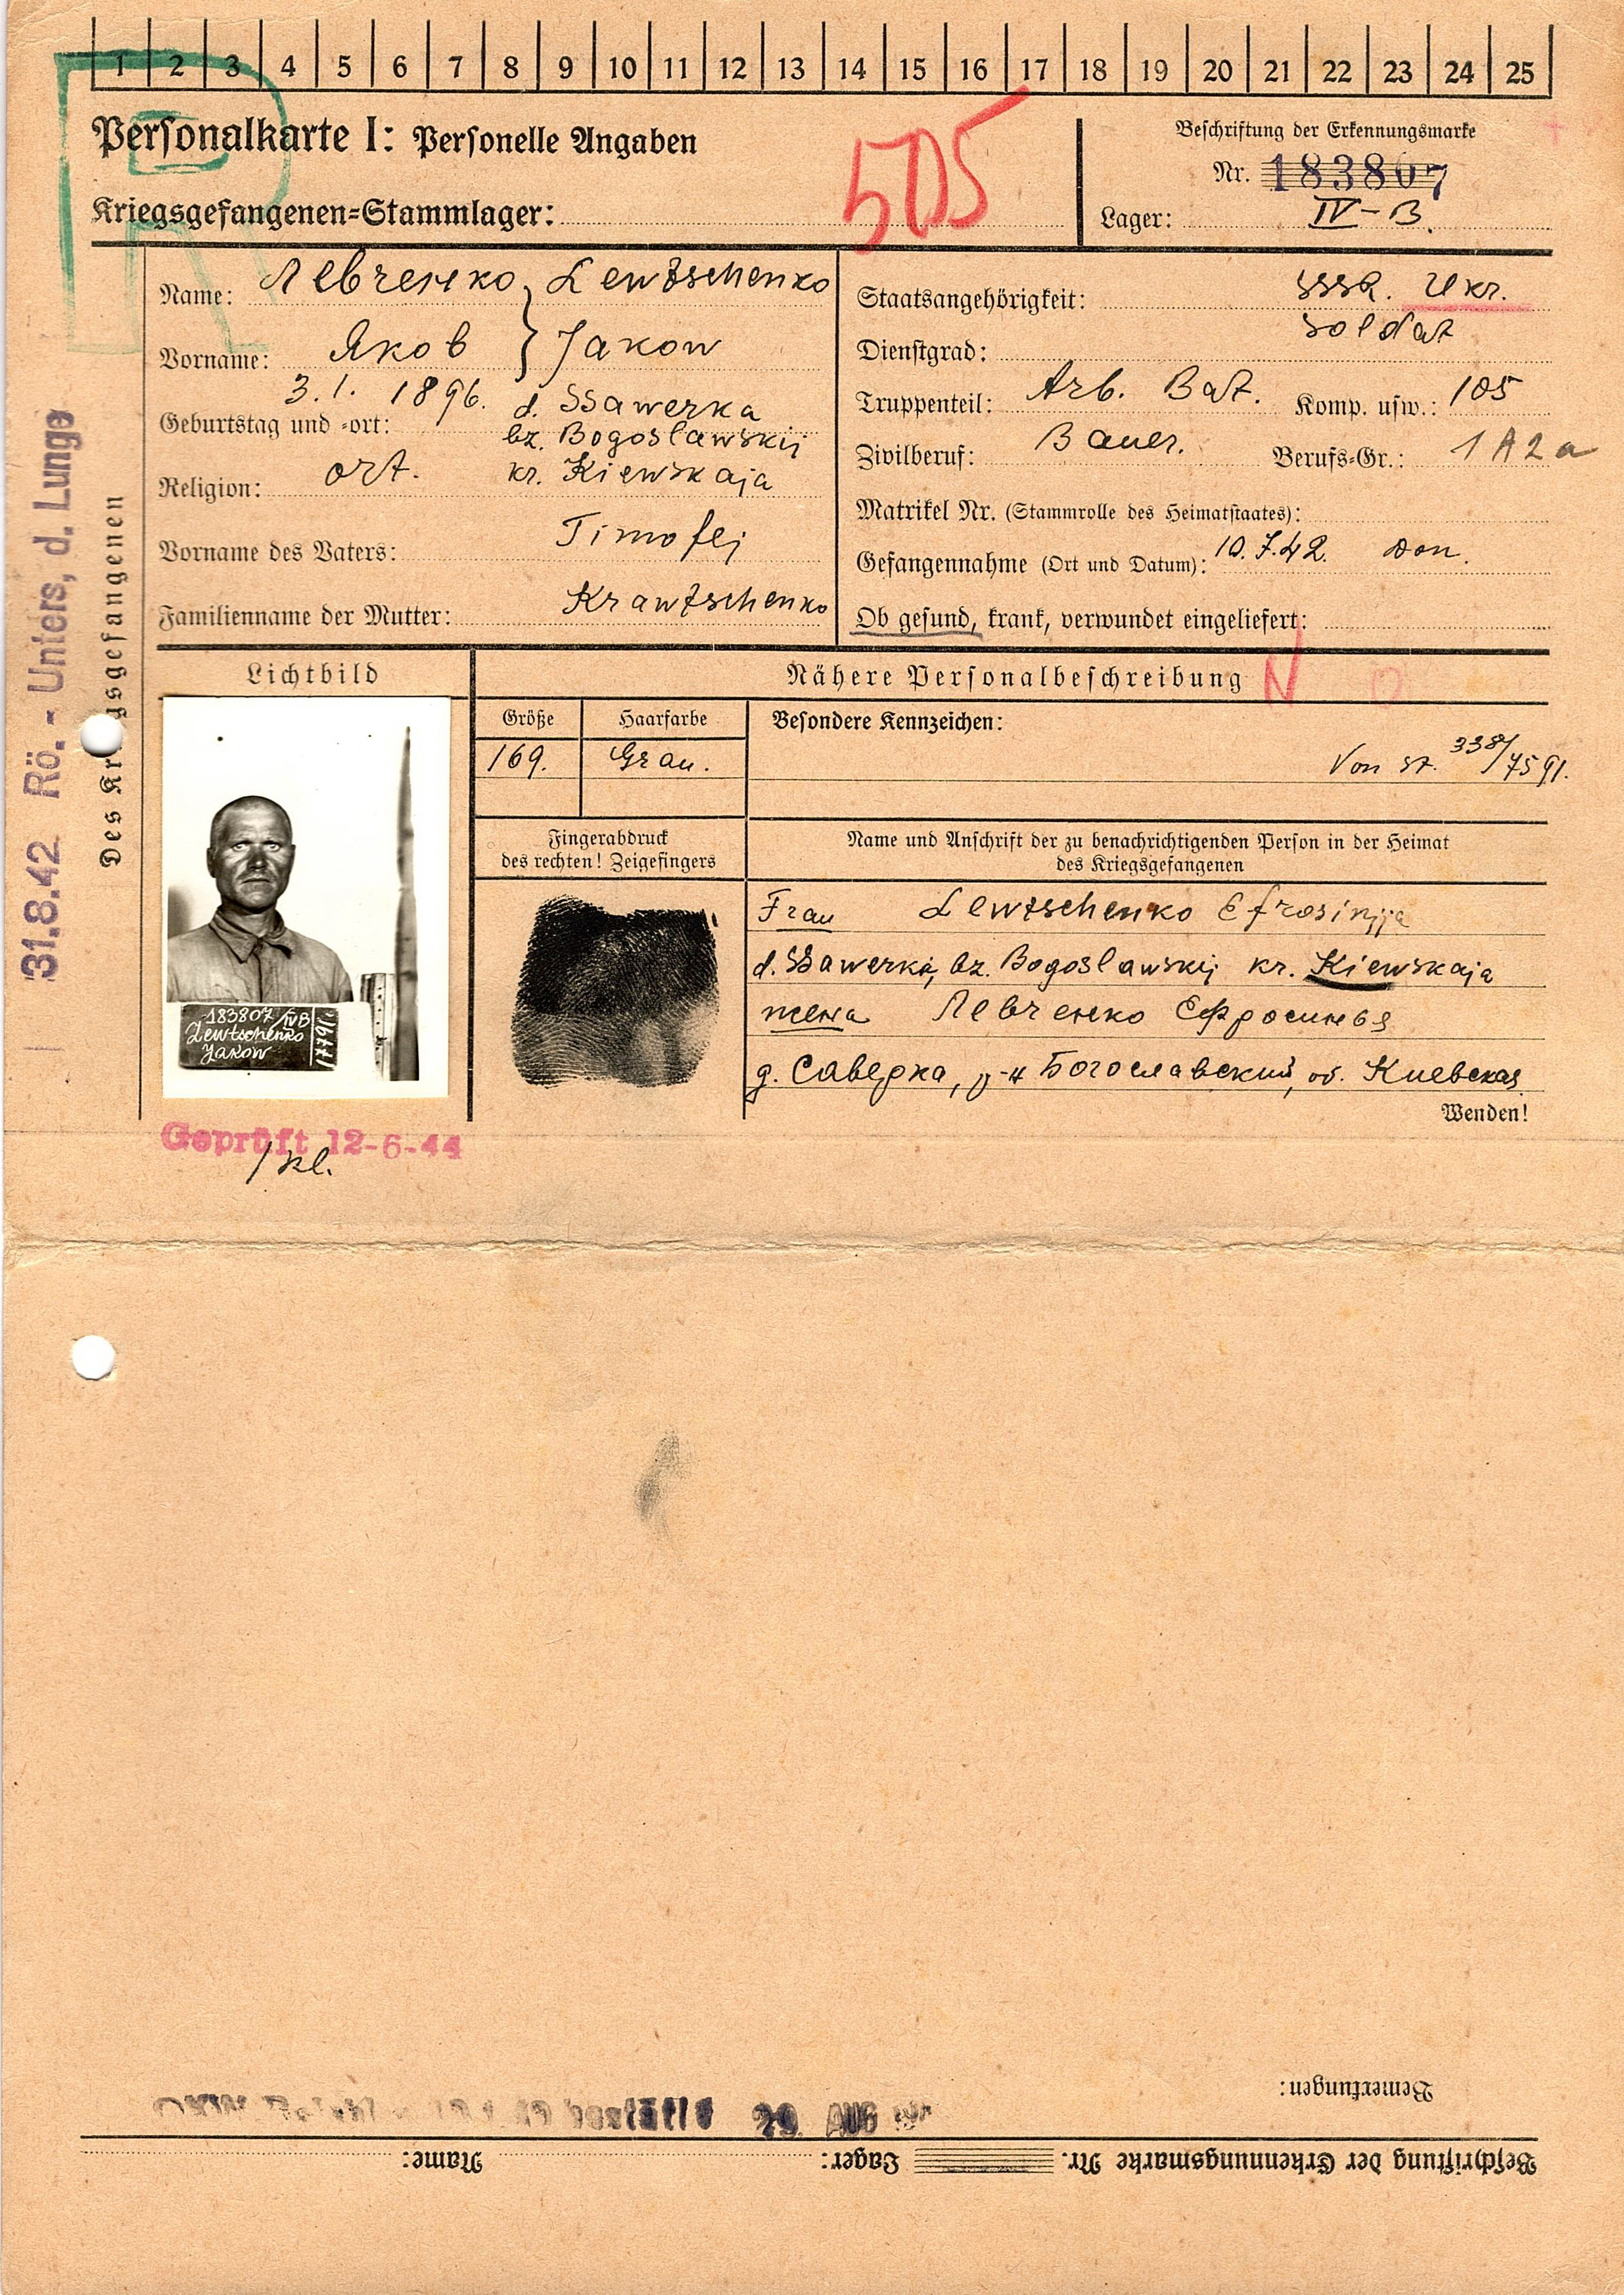 1 2 3 4 5 6 7 8 9 10 11 12 13 14 15 16 17 18 19 20 21 22 23 24 25
Personalkarte I: Personelle Angaben
505
Beschriftung der Erkennungsmarke
Nr. 183807
Kriegsgefangenen=Stammlager:
Lager: IV-B.
Name: Левченко, Lewtschenko
Vorname: Яков } Jakow
Geburtstag und =ort: 3.1. 1896. d. SSawerka
bz. Bogoslawskij
Religion: ort. kr. Kiewskaja
Vorname des Vaters: Timofej
Familienname der Mutter: Krawtschenko
Staatsangehörigkeit: SSSR. Ukr.
Dienstgrad: Soldat
Truppenteil: Arb. Bat. Komp. usw.: 105
Zivilberuf: Bauer. Berufs=Gr.: 1 A 2 a
Matrikel Nr. (Stammrolle des Heimatstaates):
Gefangennahme (Ort und Datum): 10.7.42. Don.
Ob gesund, krank, verwundet eingeliefert:
Des Kr gsgefangenen
31.8.42 Rö. - Unters, d. Lunge
Lichtbild
Nähere Personalbeschreibung
N
Größe Haarfarbe Besondere Kennzeichen:
169. Grau.
Von St. 338/7591.
Fingerabdruck
des rechten! Zeigefingers
Name und Anschrift der zu benachrichtigenden Person in der Heimat
des Kriegsgefangenen
Frau Lewtschenko Efrosinija
d. SSawerka, bz. Bogoslawskij kr. Kiewskaja
жена Левченко Ефросинья
д. Саверка, р-н Богославский, об. Киевская
Wenden!
183807/IVB
Lewtschenko
Jakow
Geprüft 12-6-44
Bemerkungen:
26. AUG
Beschriftung der Erkennungsmarke Nr. Lager: Name: